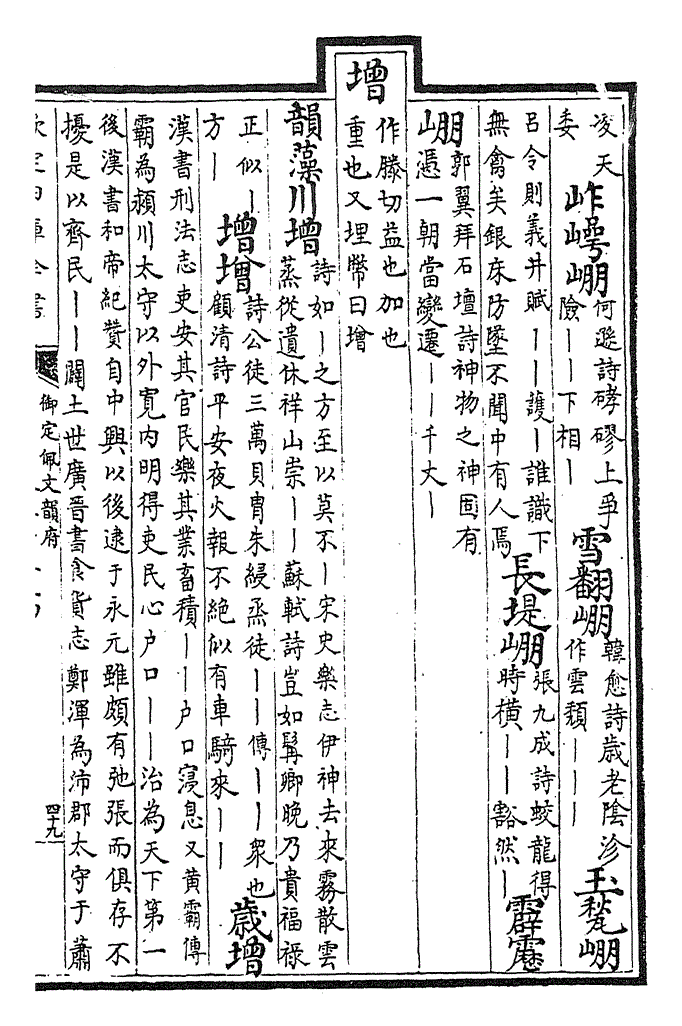 凌天委 岝崿崩 何遜詩硣磟上爭險｜｜下相｜ 雪翻崩 韓愈詩歲老陰沴作雲頽｜｜｜ 玉甃崩
呂令則義井賦｜｜護｜誰識下無禽矣銀床防墜不聞中有人焉 長堤崩 張九成詩蛟龍得時橫｜｜豁然｜ 霹靂
崩 郭翼拜石壇詩神物之神固有憑一朝當變遷｜｜千丈｜
增 作滕切益也加也重也又埋幣曰增
韻藻川增 詩如｜之方至以莫不｜宋史樂志伊神去來霧散雲蒸從遺休祥山崇｜｜蘇軾詩豈如髯卿晚乃貴福祿
正似｜方｜ 增增 詩公徒三萬貝冑朱綬烝徒｜｜傳｜｜衆也顧清詩平安夜火報不絕似有車騎來｜｜ 歲增
漢書刑法志吏安其官民樂其業畜積｜｜户口寖息又黄霸傳
霸為潁川太守以外寛内明得吏民心户口｜｜治為天下第一
後漢書和帝紀贊自中興以後逮于永元雖頗有弛張而俱存不
擾是以齊民｜｜闢土世廣晉書食貨志鄭渾為沛郡太守于蕭
欽定四庫全書
御定佩文韻府
四十九